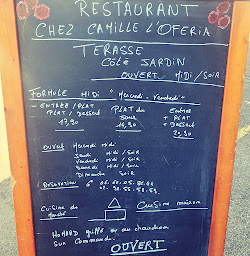 RESTAURANT
CHEZ CAMILLE L'OFERIA
TERASSE
COTÉ JARDIN
OUVERT MIDI/SOIR
FORMULE MIDI "Mercredi - Vendredi"
- ENTRÉE/PLAT
PLAT du
ENTRÉE
PLAT/DESSERT
Jour
+ PLAT
+ Dessert
17,90
20,90
OUVERT Mercredi Midi
Jeudi Midi/Soir
Vendredi Midi/Soir
Samedi Midi/Soir
Dimanche Soir
RESERVATION
Cuisine du
Cuisine maison
HOMARD grillé ou au chaudron
Sur Commande
OUVERT